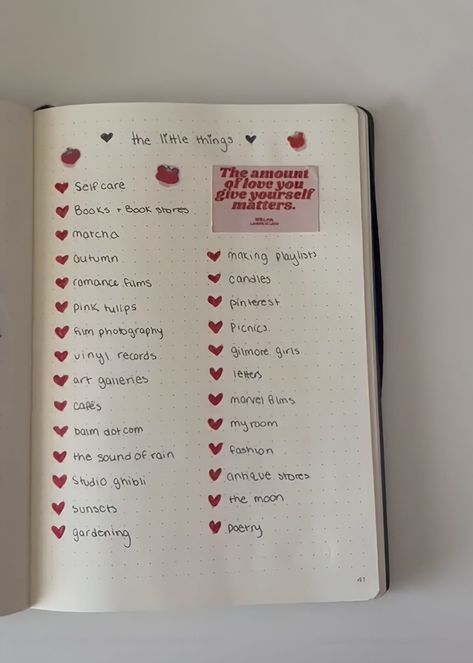 the little things
Self care
Books + Book stores
matcha
autumn
romance films
pink tulips
film photography
vinyl records
art galleries
cafés
balm dotcom
the sound of rain
Studio ghibli
sunsets
gardening
The amount
of love you
give yourself
matters.
making playlists
candles
pinterest
Picnics
gilmore girls
letters
marvel films
my room
fashion
antique stores
the moon
poetry
41